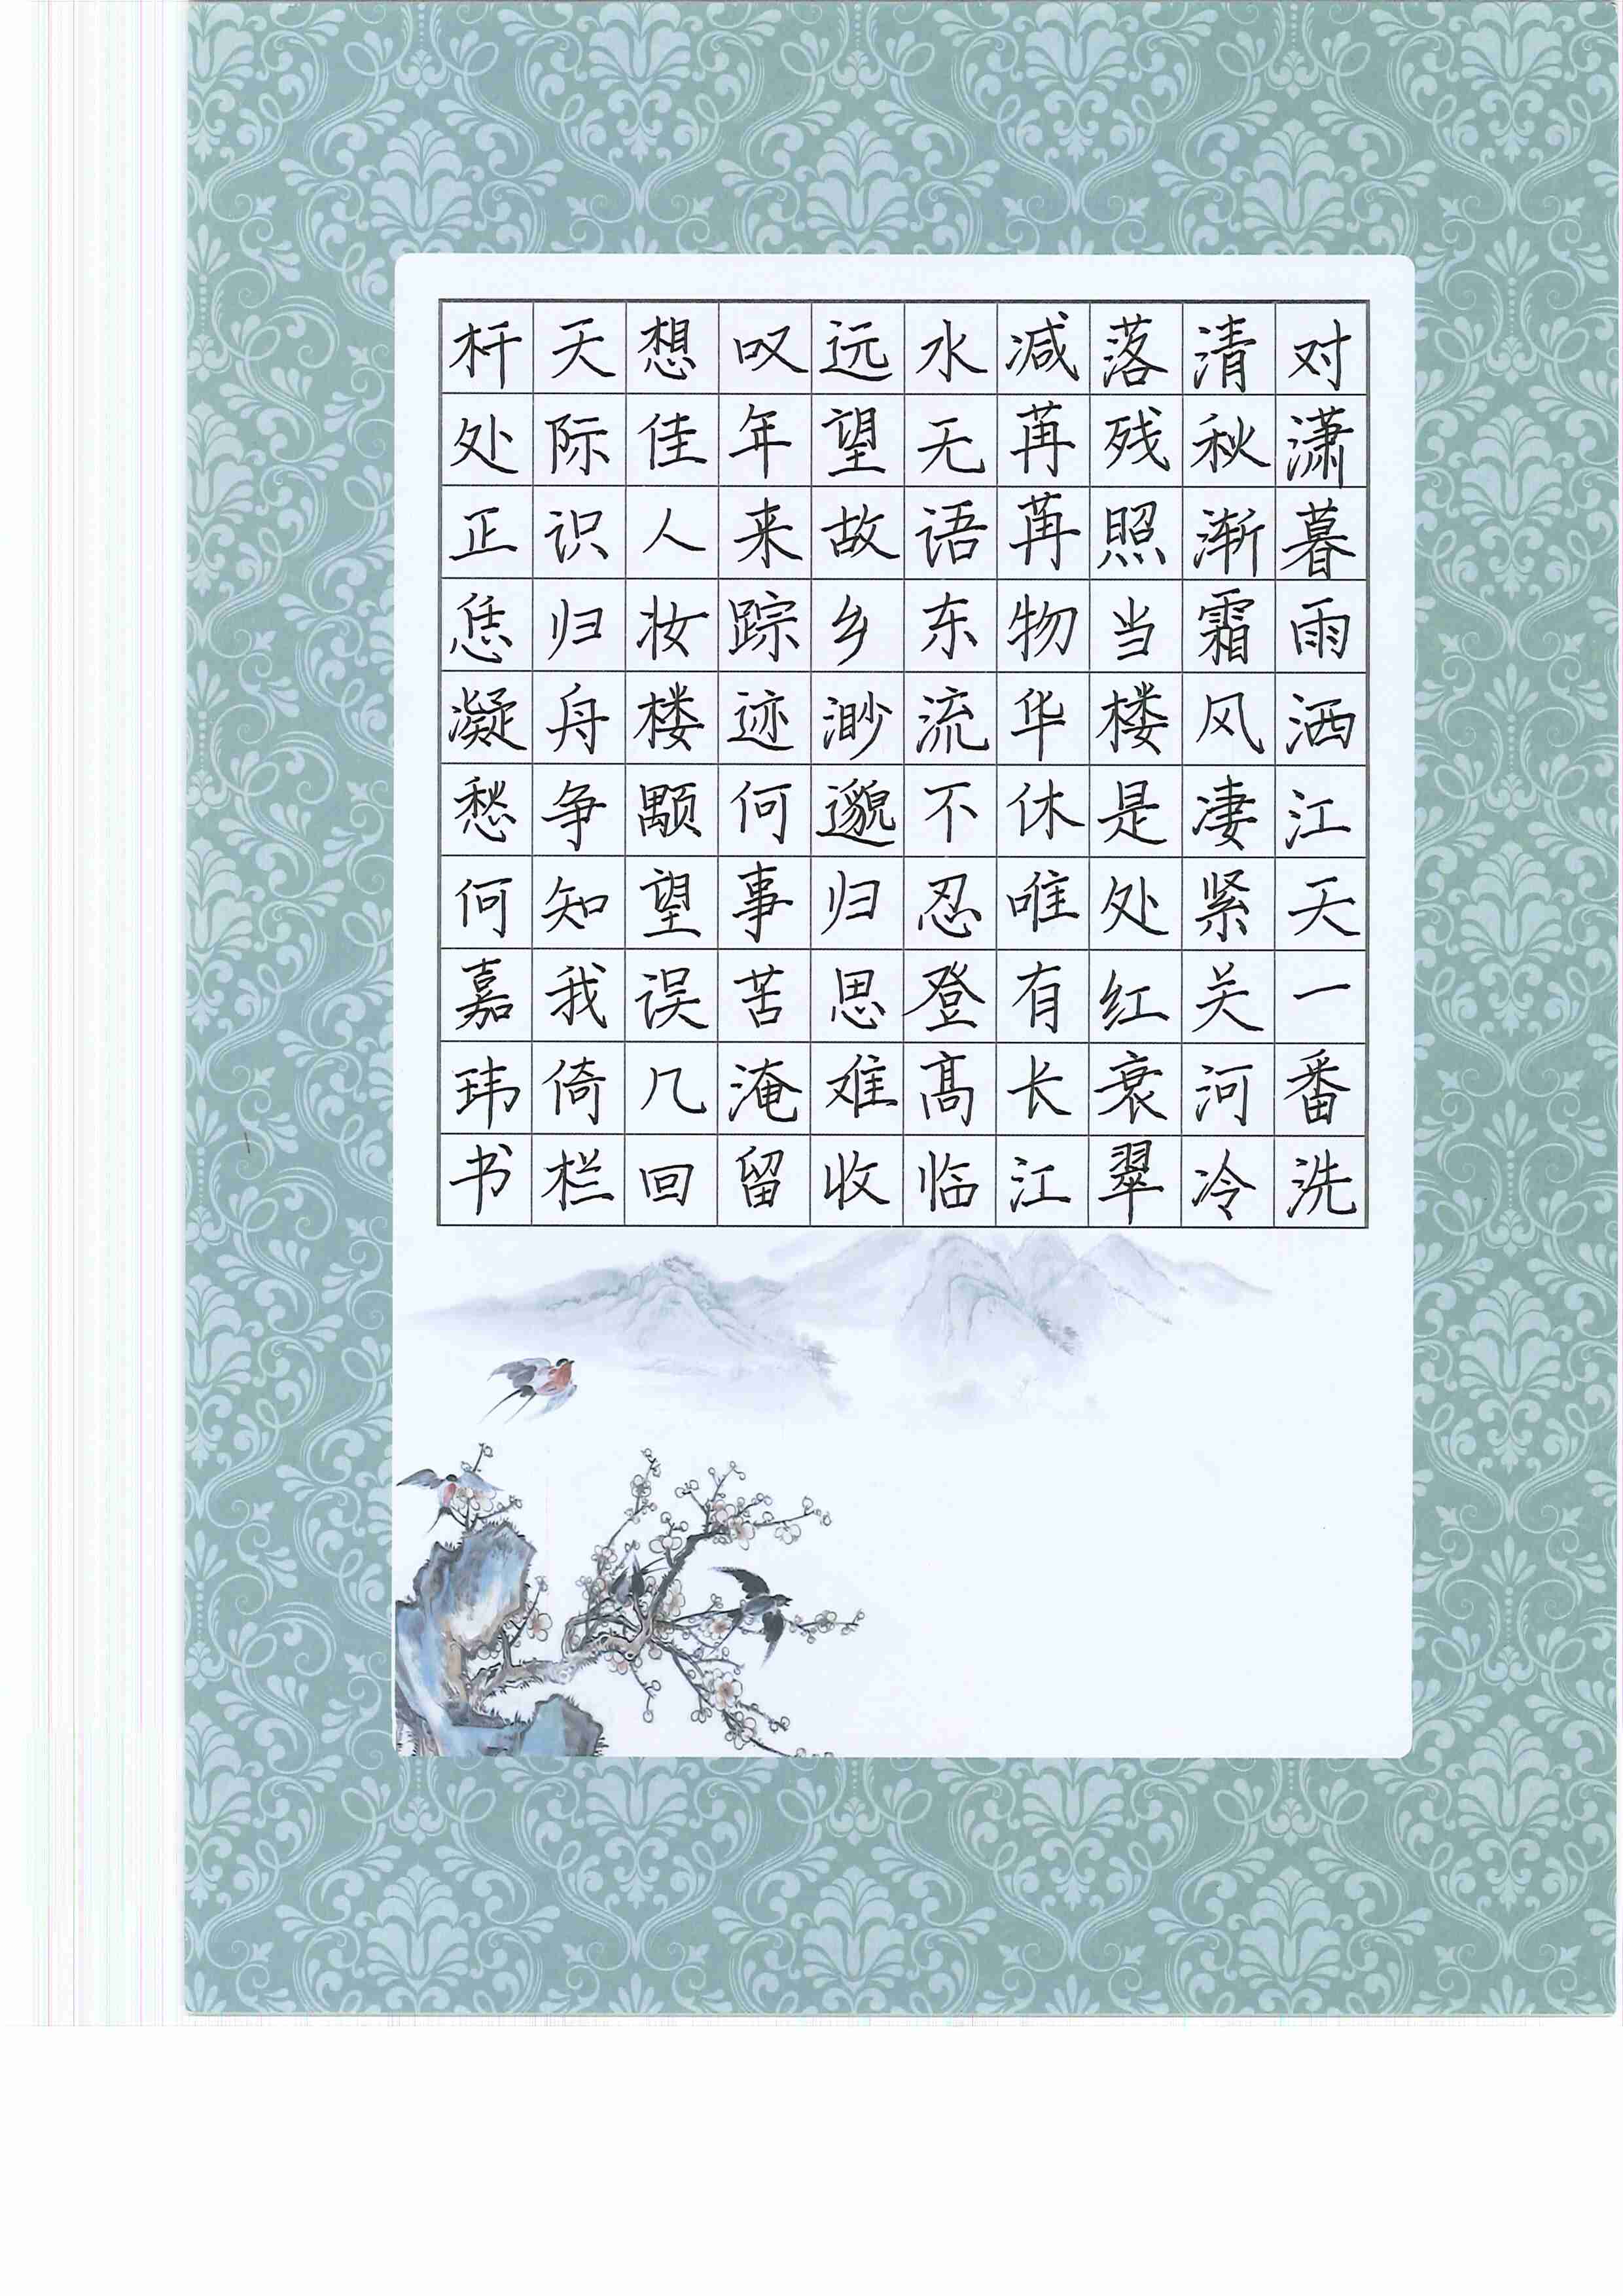 对潇暮雨洒江天一番洗
清秋渐霜风凄紧关河冷
落残照当楼是处红衰翠
减苒苒物华休唯有长江
水无语东流不忍登高临
远望故乡渺邈归思难收
叹年来踪迹何事苦淹留
想佳人妆楼颙望误几回
天际识归舟争知我倚栏
杆处正恁凝愁何嘉玮书